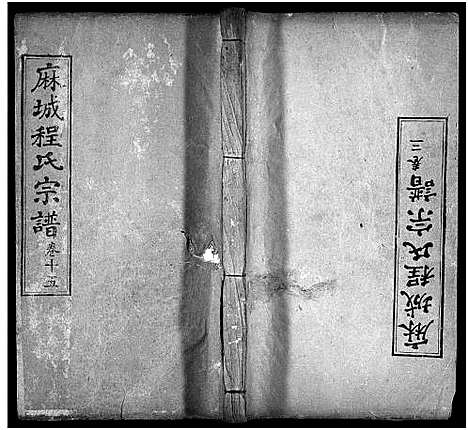 麻城程氏宗譜 卷十五
麻城程氏宗譜 卷三